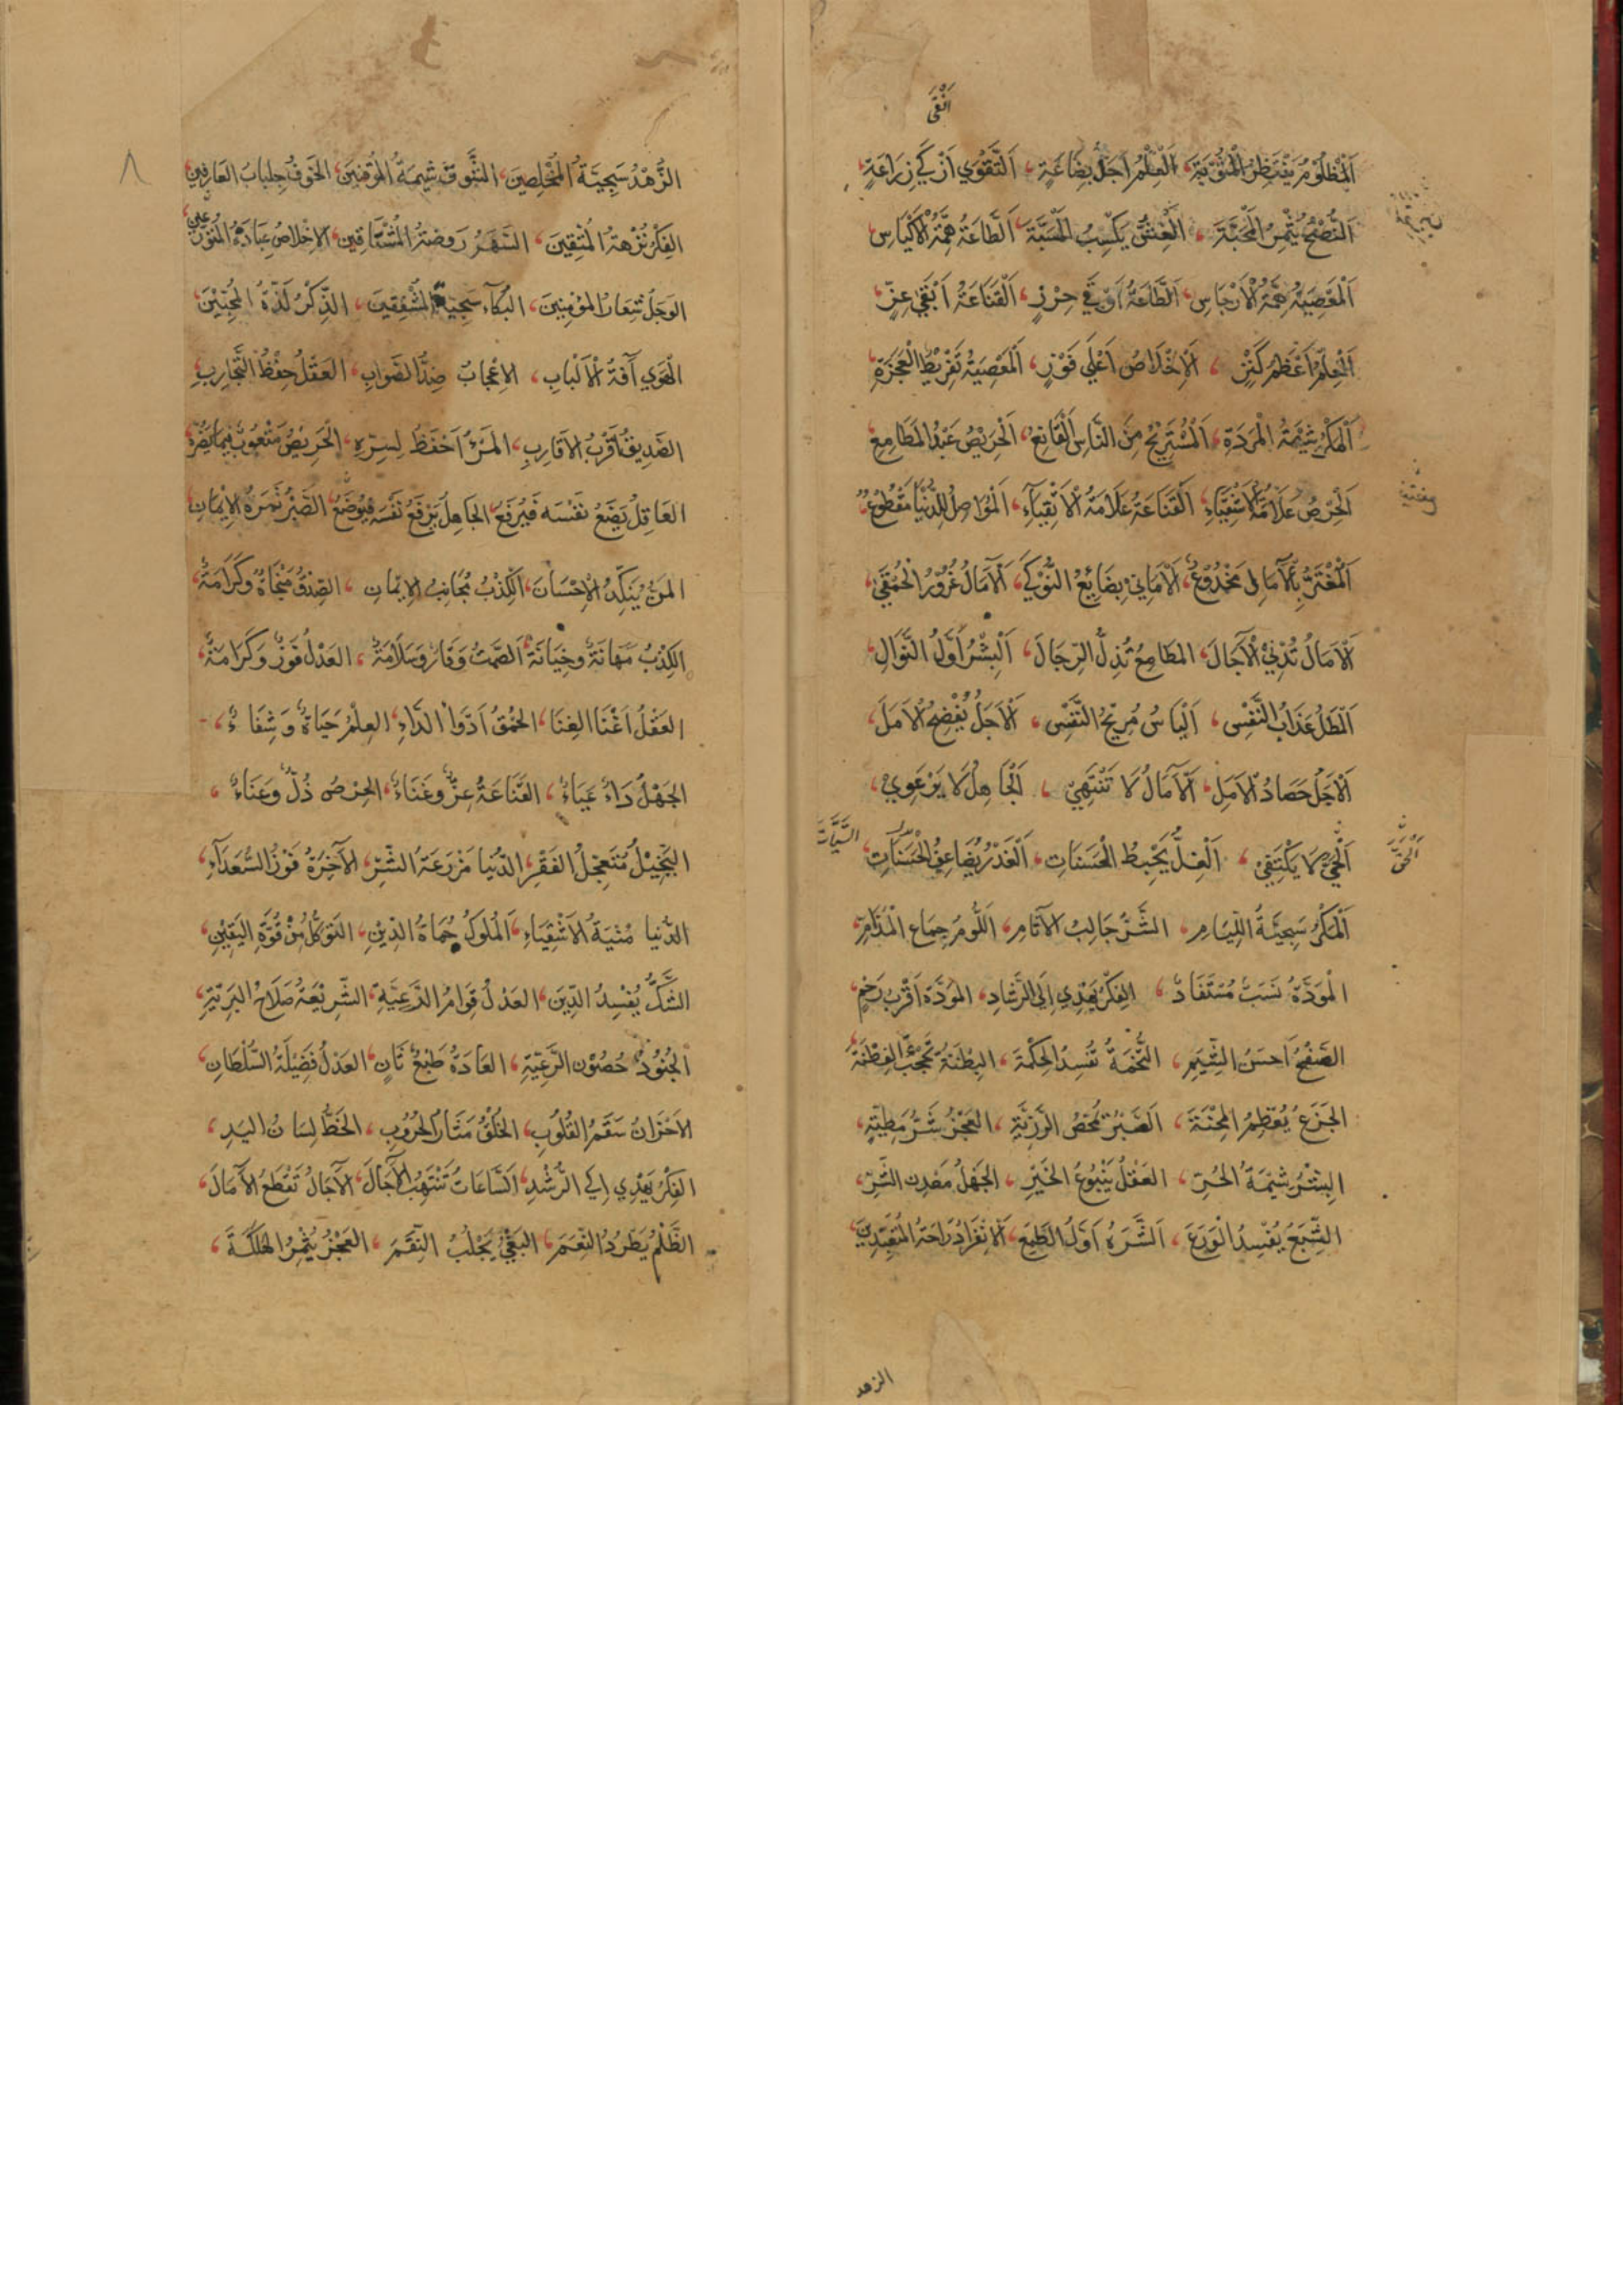 أنقى
اَلْمَظْلُومُ يَنْتَظِرُ الْمَثُوبَةَ، اَلْعِلْمُ اَجَلُّ بِضَاعَةٍ، اَلتَّقْوَي اَزْكَي زِرَاعَةٍ،
اَلنُّصْحُ يُثْمِرُ الْمَحَبَّةَ، اَلْغِشُّ يَكْسِبُ الْمَسَبَّةَ، اَلطَّاعَةُ هِمَّةُ الْاَكْيَاسِ
اَلْمَعْصِيَةُ هِمَّةُ الْاَرْجَاسِ، اَلطَّاعَةُ اَوْقَي حِرْزٍ، اَلْقَنَاعَةُ اَبْقَي عِزٍّ،
اَلْعِلْمُ اَعْظَمُ كَنْزٍ، اَلْاِخْلَاصُ اَعْلَي فَوْزٍ، اَلْمَعْصِيَةُ تَفْرِيْطُ الْعَجَزَةِ
اَلْمَكْرُ شِيْمَةُ الْمَرَدَةِ، اَلْمُسْتَرِيْحُ مِنَ النَّاسِ اَلْقَانِعُ، اَلْحَرِيْصُ عَبْدُ الْمَطَامِعِ
اَلْحِرْصُ عَلَامَةُ الْاَشْقِيَاءِ، اَلْقَنَاعَةُ عَلَامَةُ الْاَتْقِيَآءِ، اَلْمُوَاصِلُ لِلدُّنْيَا مَقْطُوعٌ
اَلْمُغْتَرُّ بِالْآمَالِ مَخْدُوْعٌ، اَلْاَمَانِيْ بِضَائِعُ النَّوْكَي، اَلْآمَالُ غُرُوْرُ الْحُمَقَي،
اَلْآمَالُ تُدْنِيْ الْآجَالَ، المَطَامِعُ تُذِلُّ الرِّجَالَ، اَلْبِشْرُ اَوَّلُ النَّوَالِ
اَلْمَطَلُ عَذَابُ النَّفْسِ، اَلْيَاْسُ مُرِيْحُ النَّفْسِ، اَلْاَجَلُ يُفْضِحُ الْاَمَلَ،
اَلْاَجَلُ حَصَادُ الْاَمَلِ، اَلْآمَالُ لَا تَنْتَهِيْ، اَلْجَاهِلُ لَا يَرْعَوِيْ،
لَا يَكْتَفِيْ، اَلْغِلُّ يُحْبِطُ الْحَسَنَاتِ، اَلْغَدْرُ يُضَاعِفُ الْحَسَنَاتِ، السَّيِّآتِ
اَلْمَكْرُ سَجِيَّةُ اللِّيَامِ، الشَّرُّ جَالِبُ الْآثَامِ، اَللُّومُ جِمَاعُ الْمَذَامِّ،
الْمَوَدَّةُ نَسَبٌ مُسْتَفَادٌ، الفِكْرُ يَهْدِي اِلَى الرَّشَادِ، المَوَدَّةُ اَقْرَبُ رَحِمٍ،
الصَّفْحُ اَحْسَنُ الشِّيَمِ، التُّخَمَةُ تُفْسِدُ الحِكْمَةَ، البِطْنَةُ تَحْجُبُ الفِطْنَةَ
الجَزَعُ يُعَظِّمُ المِحْنَةَ، اَلصَّبْرُ يُمَحِّصُ الرَّزِيَّةِ، العَجْزُ شَرُّ مَطِيَّةٍ،
البِشْرُ شِيْمَةُ الحُرِّ، العَقْلُ يَنْبُوعُ الخَيْرِ، الجَهْلُ مَعْدِنُ الشَّرِّ،
الشِّبَعُ يُفْسِدُ الْوَرَعَ، اَلشَّرَهُ اَوَّلُ الطَّمَعِ، اَلْاِنْفِرَادُ رَاحَةُ المُتَعَبِّدِيْنَ،
الزهد
٨
الزُّهْدُ سَجِيَّةُ الْمُخْلِصِينَ، الشَّوقُ شِيمَةُ الْمُوقِنِينَ، الخَوفُ جِلْبَابُ العَارِفِينَ
الفِكْرُ نُزْهَةُ الْمُتَّقِينَ، السَّهَرُ رَوضَةُ الْمُشْتَاقِينَ، الاِخْلَاصُ عِبَادَةُ المُقَرَّبِينَ
الوَجَلُ شِعَارُ المُؤمِنِينَ، البُكَآءُ سَجِيَّةُ الْمُشْفِقِينَ، الذِّكْرُ لَذَّةُ الْمُحِبِّيْنَ،
الْهَوَي آفَةُ الْاَلْبَابِ، الاِعْجَابُ ضِدُّ الصَّوَابِ، العَقْلُ حِفْظُ التَّجَارِبِ
الصَّدِيقُ اَقْرَبُ الاَقَارِبِ، المَرْءُ اَحْفَظُ لِسِرِّهِ، الحَرِيْصُ مَتْعُوبٌ فِيمَا يَضُرُّهُ
العَاقِلُ يَضَعُ نَفْسَهُ فَيُرْفَعُ، الجَاهِلُ يَرْفَعُ نَفْسَهُ فَيُوضَعُ، الصَّبْرُ ثَمَرَةُ الاِيْمَانِ
المَنُّ يُنَكِّدُ الاِحْسَانَ، اَلْكِذْبُ مُجَانِبُ الاِيْمَانِ، الصِّدْقُ مَنْجَاةٌ وَكَرَامَةٌ،
الكِذْبُ مَهَانَةٌ وَخِيَانَةٌ، اَلصَّمْتُ وَقَارٌ وَسَلَامَةٌ، العَدْلُ فَوْزٌ وَكَرَامَةٌ،
العَقْلُ اَغْنَا الغِنَا، الحُمْقُ اَدْوَاُ الدَّاءِ، العِلْمُ حَيَاةٌ وَشِفَاءٌ،
الجَهْلُ دَاءٌ عَيَاءٌ، القَنَاعَةُ عِزٌّ وَغَنَاءٌ، الحِرْصُ ذُلٌّ وَعَنَاءٌ،
البَخِيْلُ مُتَعَجِّلُ الفَقْرِ، الدُّنْيَا مَزْرَعَةُ الشَّرِّ، الآخِرَةُ فَوْزُ السُّعَدَآءِ،
الدُّنْيَا مُنْيَةُ الاَشْقِيَاءِ، اَلْمُلُوكُ حُمَاةُ الدِّيْنِ، التَوَكُّلُ مِنْ قُوَّةِ اليَقِيْنِ،
الشَّكُّ يُفْسِدُ الدِّيْنَ، العَدْلُ قِوَامُ الرَّعِيَّةِ، الشَّرِيْعَةُ صَلَاحُ البَرِيَّةِ،
الجُنُوْدُ حُصُوْنُ الرَّعِيَّةِ، العَادَةُ طَبْعٌ ثَانٍ، العَدْلُ فَضِيْلَةُ السُّلْطَانِ،
الاَحْزَانُ سَقَمُ القُلُوْبِ، الخُلْفُ مَثَارُ الحُرُوْبِ، الخَطُّ لِسَانُ اليَدِ،
الفِكْرُ يَهْدِي اِلَي الرُّشْدِ، اَلسَّاعَاتُ تَنْتَهِبُ الآجَالَ، الآجَالُ تَقْطَعُ الآمَالَ،
الظُّلْمُ يَطْرُدُ النِّعَمَ، البَغْيُ يَجْلُبُ النِّقَمَ، العَجْزُ يُثْمِرُ الْهَلَكَةَ،